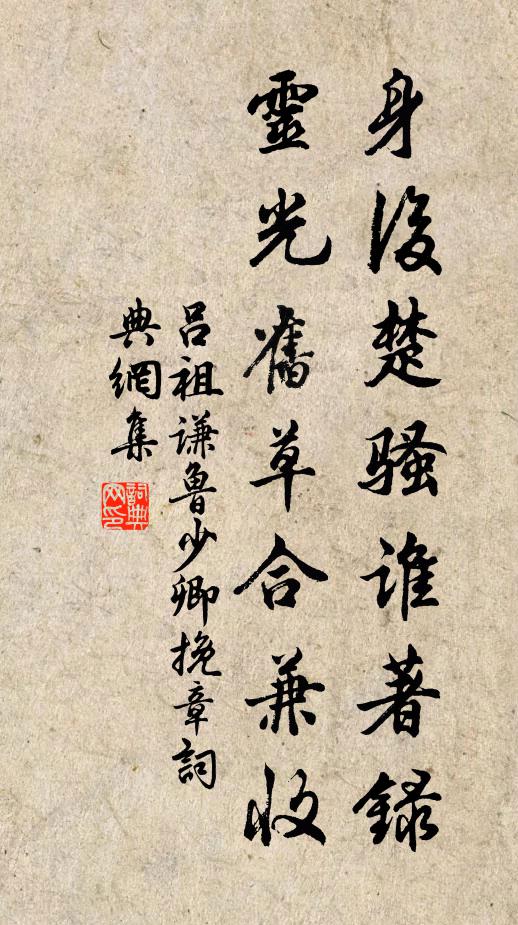 身後楚骚誰著録
靈光舊草合兼收
吕祖谦魯少卿挽章詞
典網集
詞典
网印